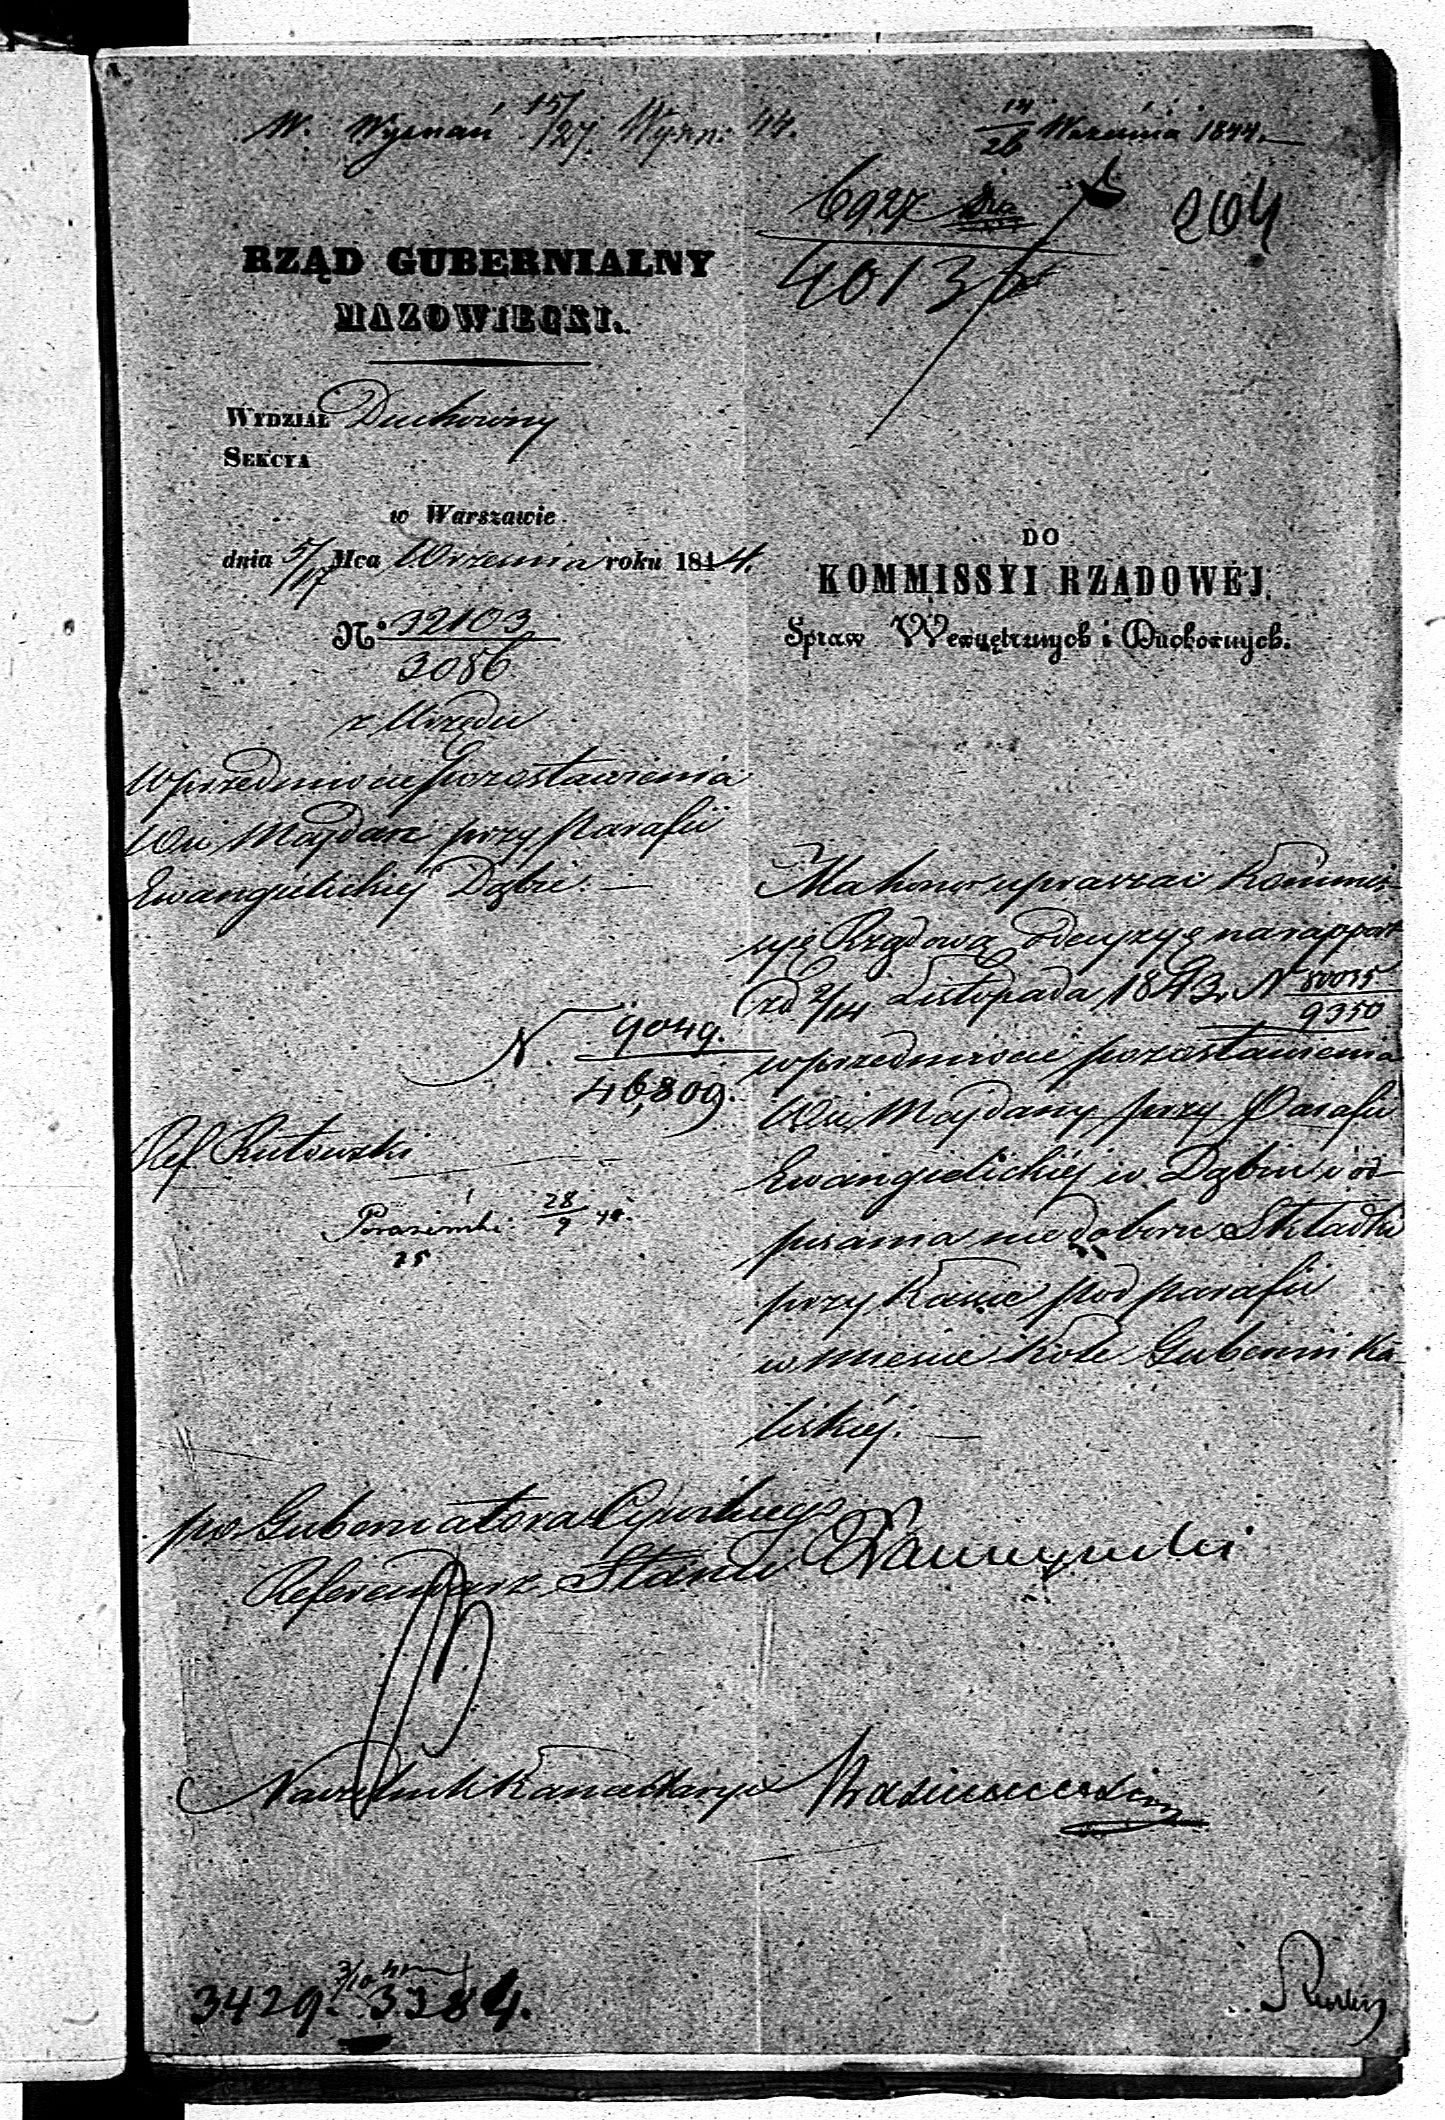 W. Wyznań 15/27 Wrzn: 44.
14/26 Września 1844.
6927
4013
204
RZĄD GUBERNIALNY
MAZOWIECKI.
WYDZIAŁ Duchowny
SEKCYA
w Warszawie
dnia 5/17 Mca Września roku 1844.
N° 32103
3086
z Urzędu
W przedmiocie pozostawienia
Wsi Majdan przy Parafii
Ewangielickiej Dąbie. —
N. 9049.
46,809.
Ref. Rutowski
28/9 44.
25
DO
KOMMISSYI RZĄDOWEJ
Spraw Wewnętrznych i Duchownych.
Ma honor upraszać Kommis-
syę Rządową o decyzyę na rapport
od 2/14 Listopada 1843 r. N 80035
9350
w przedmiocie pozostawienia
Wsi Majdany przy Parafii
Ewangielickiej w Dąbiu i od-
pisania niedoboru Składki
przy Kassie pod parafii
w mieście Kole Gubernii Ka-
liskiej. —
po. Gubernatora Cywilnego
Referendarz Stanu
Naczelnik Kancellaryi
3429. 3/10 44 3384.